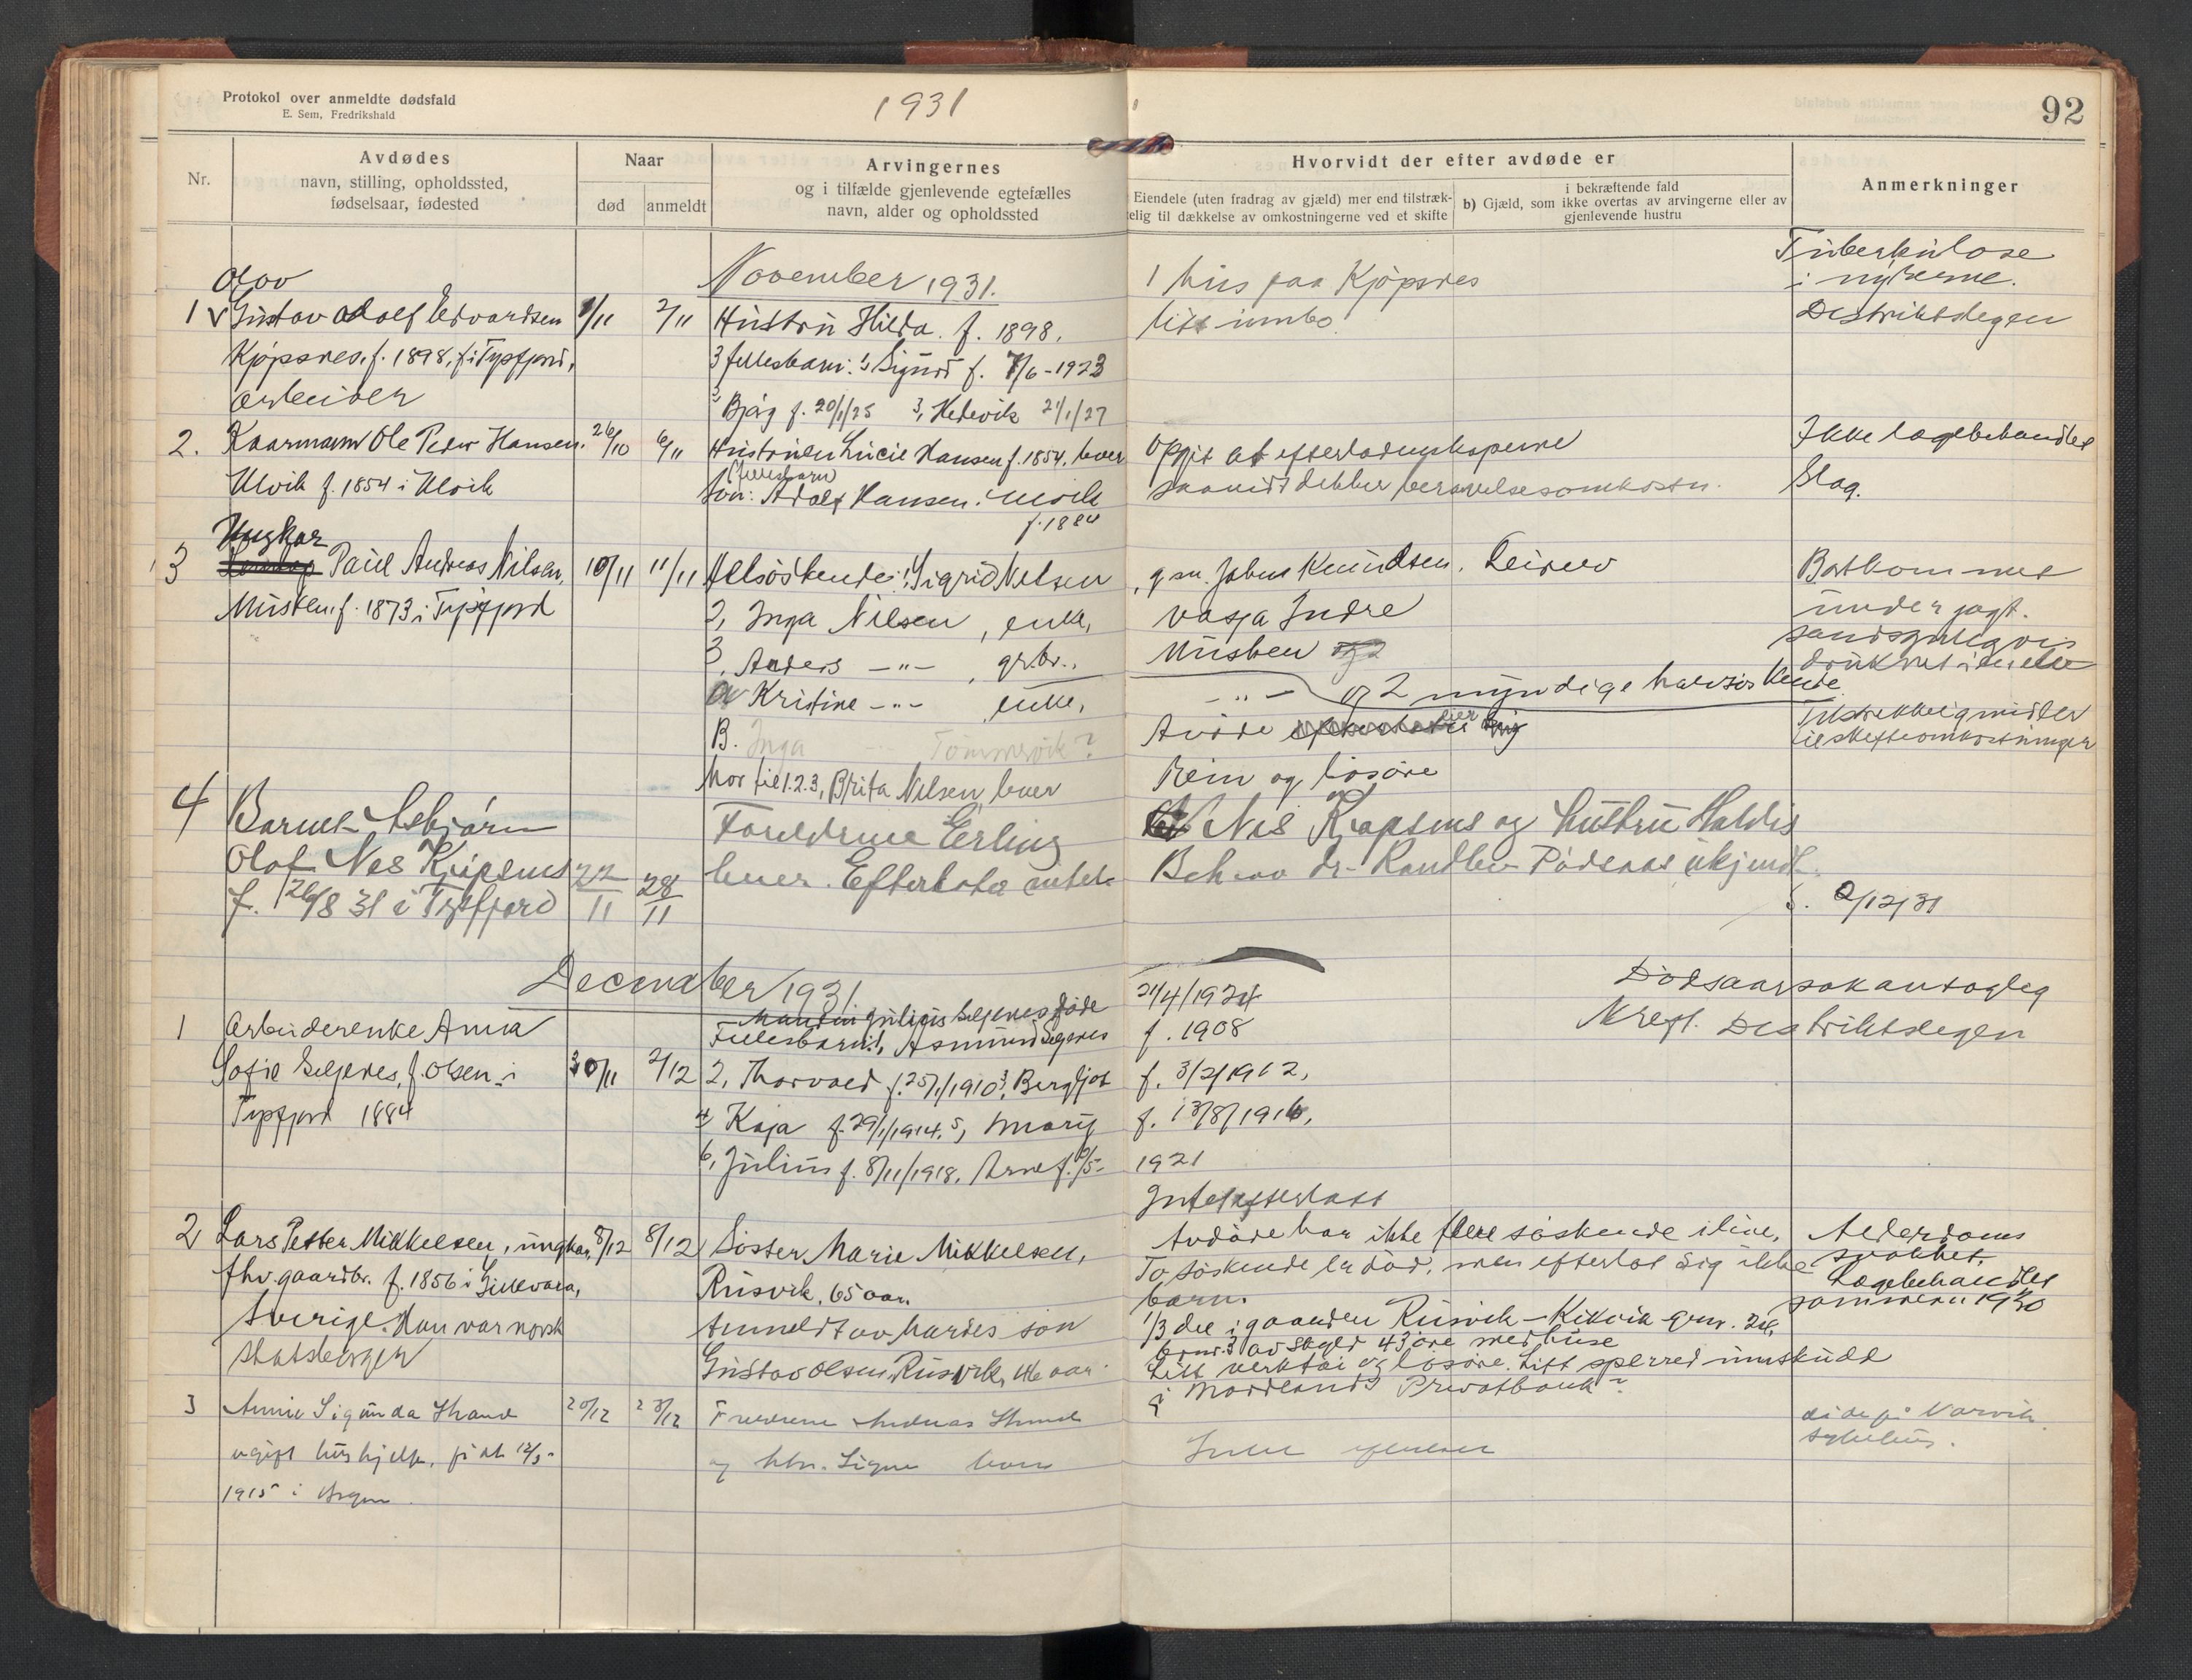 Protokol over anmeldte dødsfald
E. Sem, Fredrikshald
1931
92
Nr.
Avdødes
navn, stilling, opholdssted,
fødselsaar, fødested
Naar
død
anmeldt
Arvingernes
og i tilfælde gjenlevende egtefælles
navn, alder og opholdssted
Hvorvidt der efter avdøde er
Eiendele (uten fradrag av gjæld) mer end tilstræk-
elig til dækkelse av omkostningerne ved et skifte
i bekræftende fald
b) Gjæld, som ikke overtas av arvingerne eller av
gjenlevende hustru
Anmerkninger
November 1931.
1 Gustav Adolf Edvardsen
Kjøpsnes, f. 1898, f i Tysfjord,
arbeider
1/11
2/11
Hustru Hilda f. 1898.
3 fellesbarn: 1, Sigurd f. 7/6-1923
2, Bjørg f. 20/1/25 3, Hedevik 21/1/27
1 hus paa Kjøpsnes
litt innbo
Tuberkulose
i nyrerne.
Distriktslegen
2. Kaarmann Ole Peder Hansen.
Ulvik f. 1854 i Ulvik
26/10
6/11
Hustruen Lucie Hansen f. 1854, lever
fellesbarn
Søn: Adolf Hansen i Ulvik
f. 1884
Opgit at efterladenskaperne
saavidt dekker begravelsesomkostn.
Ikke lægebehandlet
Slag.
3 Ungkar
Paul Andreas Nilsen,
Musken, f. 1873 i Tysfjord
10/11
11/11
Helsøskende: 1, Sigrid Nilsen
2, Inga Nilsen, enke,
3, Anders -"- , grbr.,
Kristine -"- enke,
B. Inga Tømmervik?
Mor til 1.2.3, Brita Nilsen, lever
g.m. Johan Knudsen, Leiren
Indre
Musken
-"- og 2 myndige halvsøskende
Avdøde eier
Rein og løsøre
Bortkommet
under jagt.
sandsynligvis
druknet i en elv
Tilstrekkelig midler
til skifteomkostninger
4 Barnet Asbjørn
Olaf Nes Kjøpsnes
f. 26/8 31 i Tysfjord
22/11
28/11
Foreldrene Erling
Nes Kjøpsnes og hustru Haldis
lever. Efterlota intet
Beh. av dr. Dødsaar ukjendt.
2/12/31
December 1931.
1 Arbeiderenke Anna
Sofie Seljenes, f. Olsen i
Tysfjord 1884
30/11
2/12
Manden Julius Seljenes døde
21/4/1924
Fellesbarn: 1, Asmund Seljenes
f. 1908
2, Thorvald f. 25/1/1910 3, Bergljot
f. 3/2/1912,
4 Kaja f. 29/1/1914. 5, Mary
f. 13/8/1916,
6, Julius f. 8/11/1918, Arne f. /5-
1921
Intet efterlatt
Dødsaarsak antagelig
Kreft. Distriktslegen
2 Lars Petter Mikkelsen, ungkar,
fhv. gaardbr. f. 1856 i Gellevara,
Sverige. Han var norsk
statsborger
8/12
8/12
Søster Marie Mikkelsen,
Rusvik, 65 aar.
Anmeldt av hendes søn
Gustav Olsen, Rusvik, 46 aar.
Avdøde har ikke flere søskende i live,
To søskende er død, men efterlot sig ikke
barn.
1/3 del i gaarden Rusvik - Kikvik gnr. 24,
brnr. 3 av skyld 43 øre med huse
Litt verktøi og løsøre. Litt sperret innskudd
i Nordlands Privatbank?
Alderdoms
svakhet.
Lægebehandlet
sommeren 1930
3 Annie Sigunda Strand
ugift hushjelp, født 12/5-
1915 i
20/12
23/12
Foreldrene Andreas Strand
og htr. Signe lever
Intet efterlatt
døde på Narvik
sykehus.